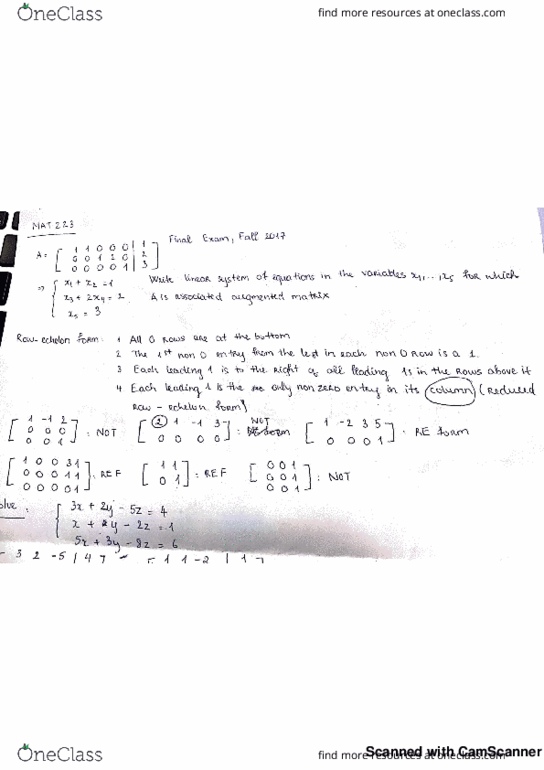 OneClass find more resources at oneclass.com
MAT 223
Final Exam, Fall 2017
A = [ 1 1 0 0 0 | 1
0 0 1 2 0 | 2
0 0 0 0 1 | 3 ]
Write linear system of equations in the variables x₁,..., x₅ for which
⇒ { x₁ + x₂ = 1
A is associated augmented matrix
x₃ + 2x₄ = 2
x₅ = 3
Row-echelon form: 1 All 0 rows are at the bottom
2 The 1st non 0 entry from the left in each non 0 row is a 1.
3 Each leading 1 is to the right of all leading 1s in the rows above it
4 Each leading 1 is the only non zero entry in its column (reduced
row-echelon form)
[ 1 -1 2
0 0 0
0 0 1 ] : NOT
[ 2 1 -1 3
0 0 0 0 ] : NOT
[ 1 -2 3 5
0 0 0 1 ] . RE form
[ 1 0 0 3 1
0 0 0 1 1
0 0 0 0 1 ] . REF
[ 1 1
0 1 ] : REF
[ 0 0 1
0 0 1
0 0 1 ] : NOT
olve : { 3x + 2y - 5z = 4
x + y - 2z = 1
5x + 3y - 8z = 6
3 2 -5 | 4 1 1 -2 | 1
OneClass find more resources at oneclass.com
Scanned with CamScanner